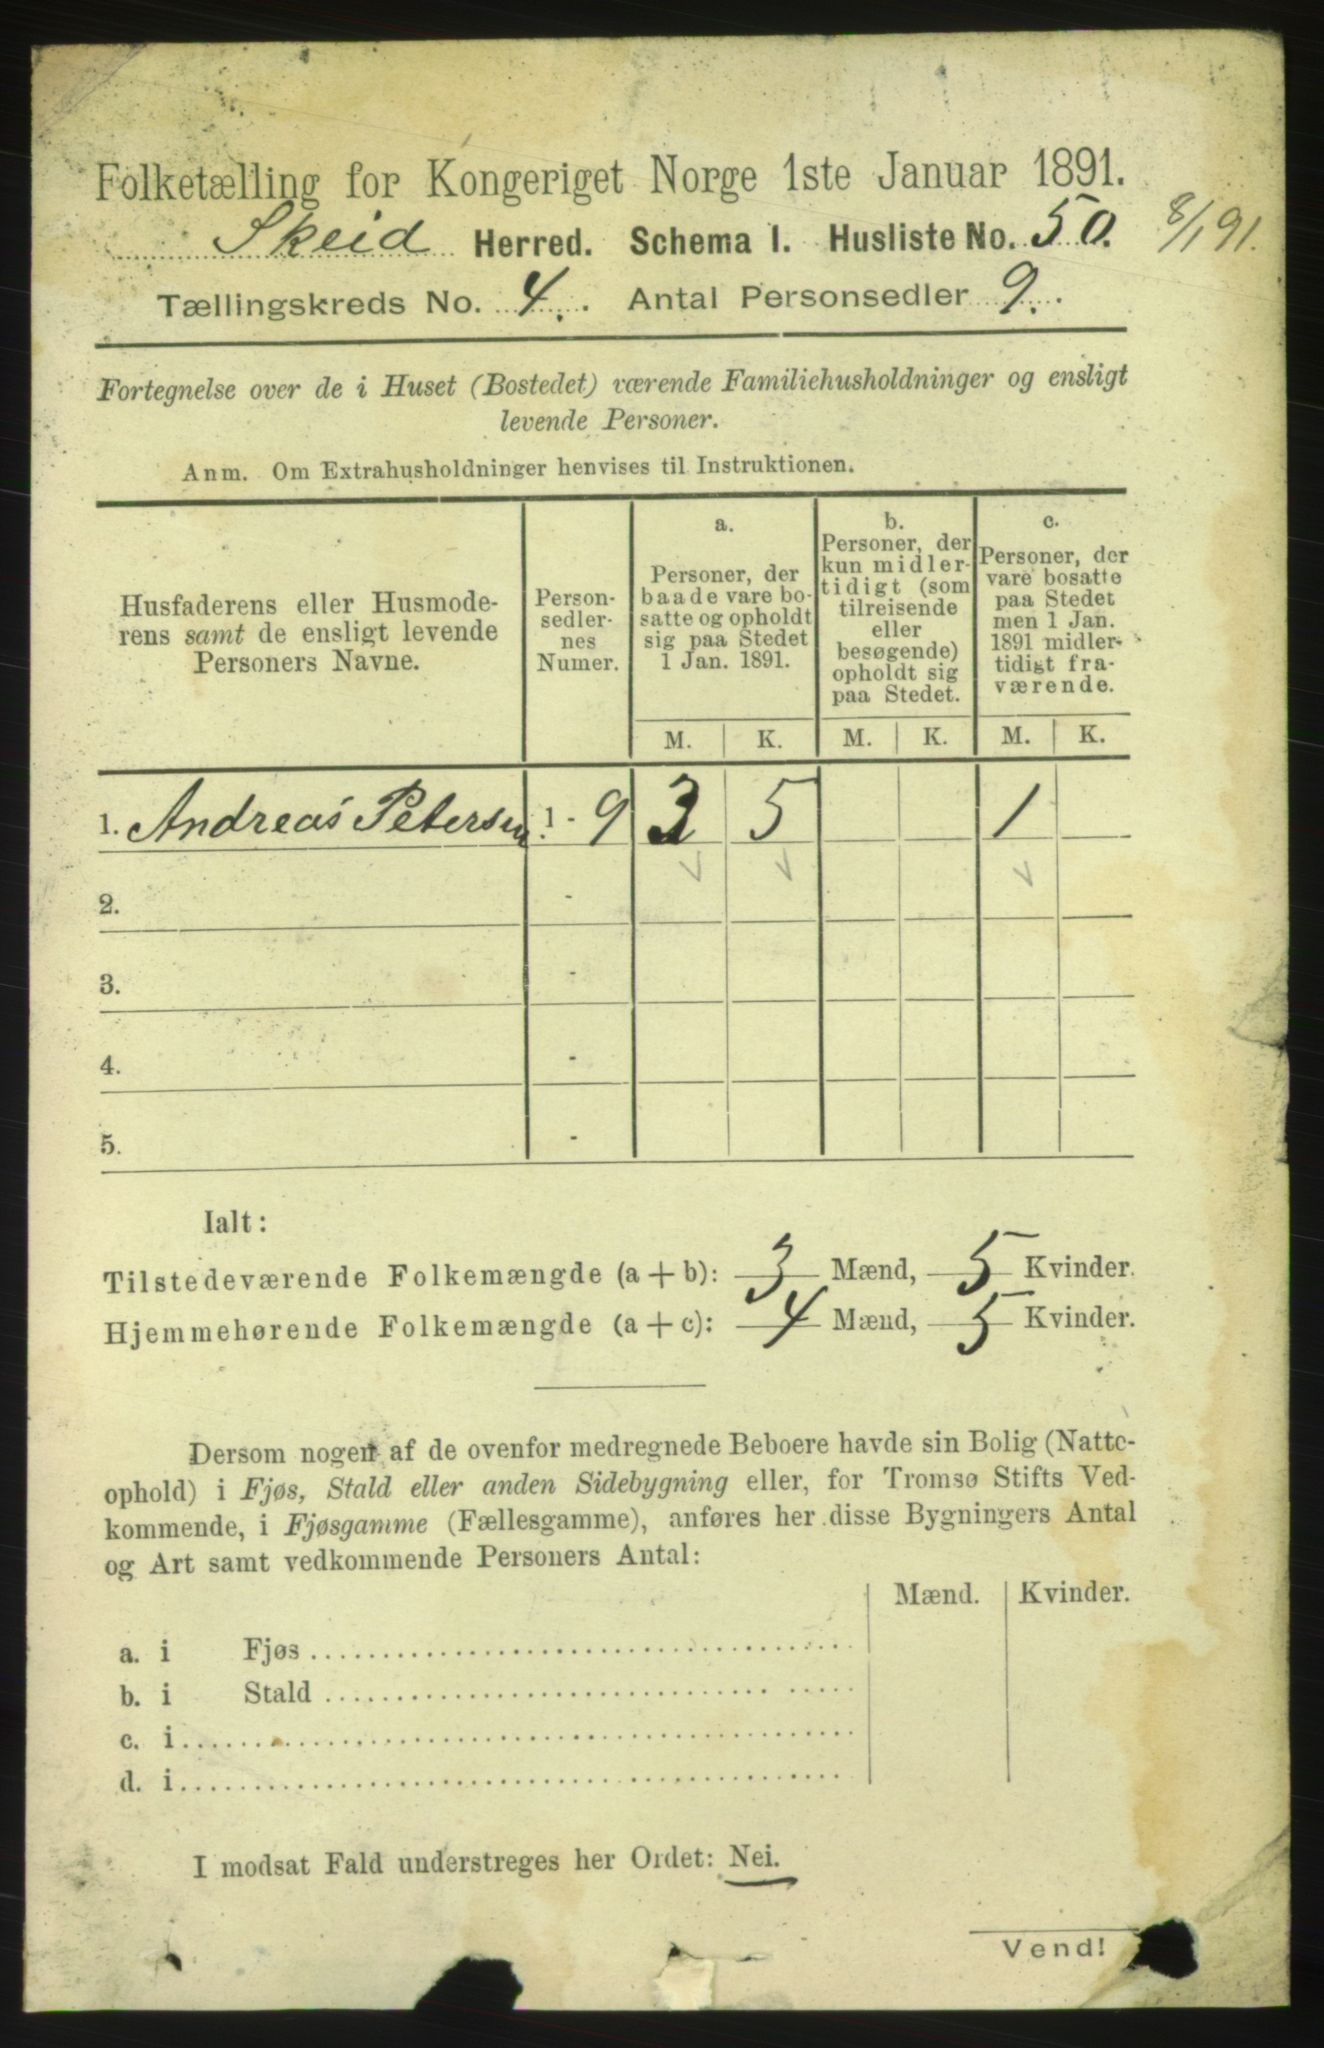 Folketælling for Kongeriget Norge 1ste Januar 1891.
Skeid Herred. Schema I. Husliste No. 50. 8/1 91.
Tællingskreds No. 4. Antal Personsedler 9.
Fortegnelse over de i Huset (Bostedet) værende Familiehusholdninger og ensligt
levende Personer.
Anm. Om Extrahusholdninger henvises til Instruktionen.
Husfaderens eller Husmode-
rens samt de ensligt levende
Personers Navne.
Person-
sedler-
nes
Numer.
a.
Personer, der
baade vare bo-
satte og opholdt
sig paa Stedet
1 Jan. 1891.
b.
Personer, der
kun midler-
tidigt (som
tilreisende
eller
besøgende)
opholdt sig
paa Stedet.
c.
Personer, der
vare bosatte
paa Stedet
men 1 Jan.
1891 midler-
tidigt fra-
værende.
M. K. M. K. M. K.
1. Andreas Petersen 1 - 9 3 5 1
2. -
3. -
4. -
5. -
Ialt:
Tilstedeværende Folkemængde (a + b): 3 Mænd, 5 Kvinder.
Hjemmehørende Folkemængde (a + c): 4 Mænd, 5 Kvinder.
Dersom nogen af de ovenfor medregnede Beboere havde sin Bolig (Natte-
ophold) i Fjøs, Stald eller anden Sidebygning eller, for Tromsø Stifts Ved-
kommende, i Fjøsgamme (Fællesgamme), anføres her disse Bygningers Antal
og Art samt vedkommende Personers Antal:
Mænd. Kvinder.
a. i Fjøs
b. i Stald
c. i
d. i
I modsat Fald understreges her Ordet: Nei.
Vend!